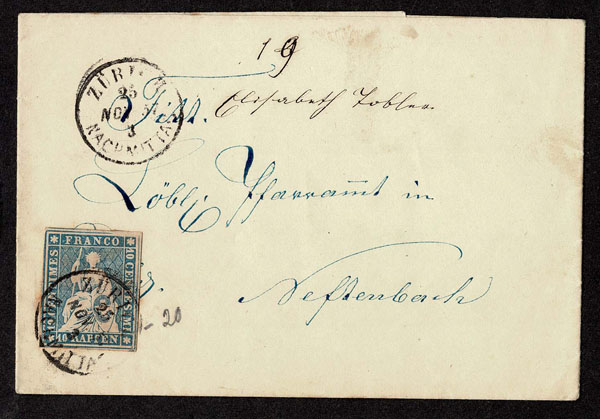 19
ZÜRICH
25
NOV
3
NACHMITTAG
Titl. Elisabeth Tobler
Löbl. Pfarramt in
Neftenbach
FRANCO
10 RAPPEN
ZÜRICH
25
NOV
- 20